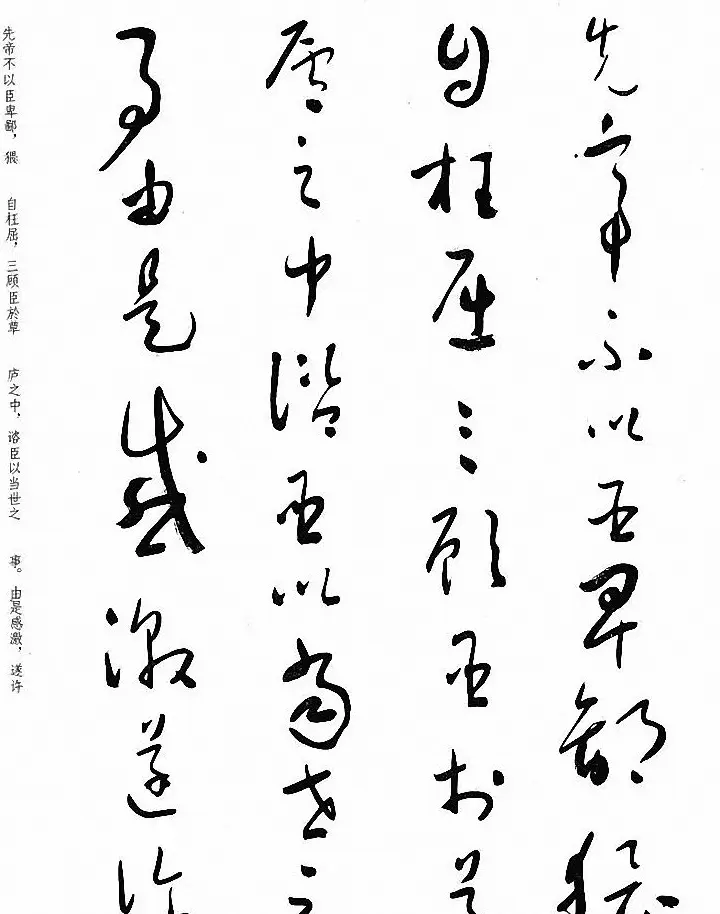 先帝不以臣卑鄙猥
自枉屈三顾臣於草
庐之中谘臣以当世之
事由是感激遂许
先帝不以臣卑鄙，猥 自枉屈，三顾臣於草 庐之中，谘臣以当世之 事。由是感激，遂许